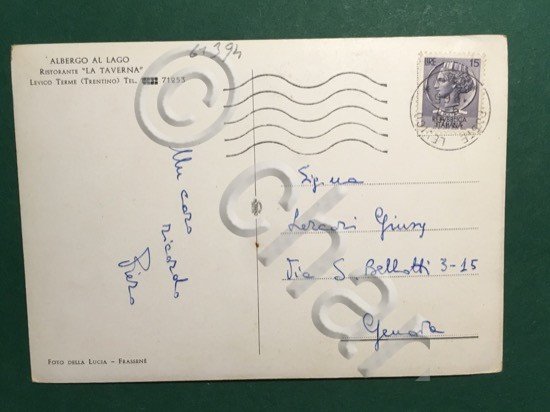 61394
ALBERGO AL LAGO
RISTORANTE "LA TAVERNA"
LEVICO TERME (TRENTINO) TEL. 71253
LIRE 15
REPUBBLICA
ITALIANA
Un caro
ricordo
Piero
Sig.na
Lercari Giusy
Via S. Bellotti 3-15
Genova
FOTO DELLA LUCIA - FRASSENÈ
© char